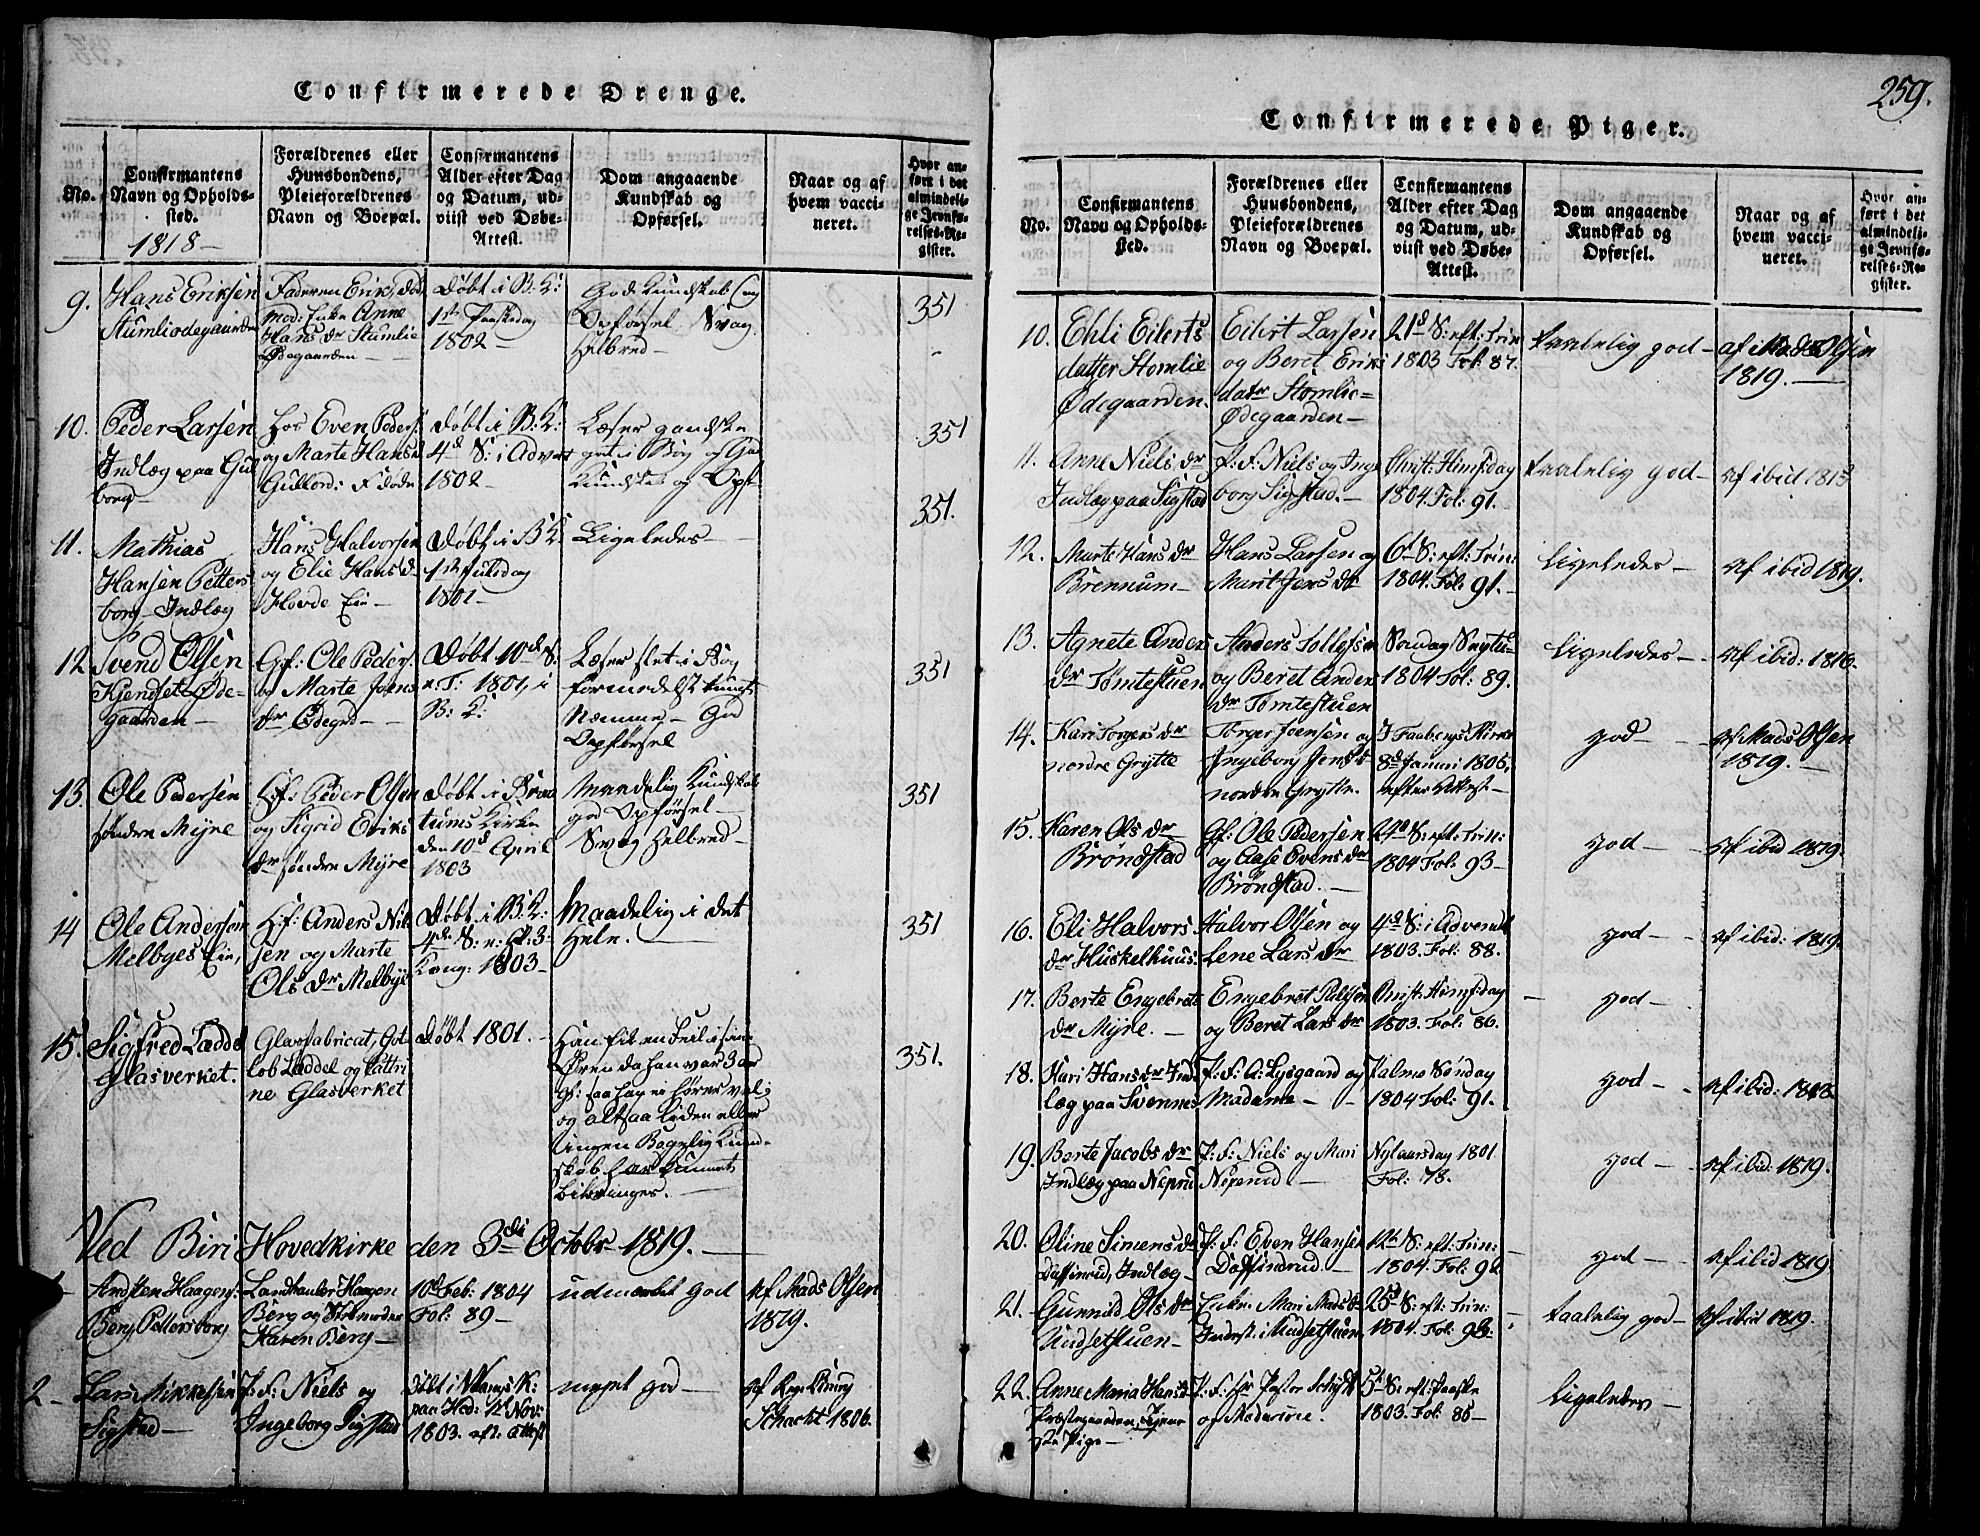 Confirmerede Drenge.
No.
Confirmantens
Navn og Opholds-
sted.
1818 -
Forældrenes eller
Huusbondens,
Pleieforældrenes
Navn og Boepæl.
Confirmantens
Alder efter Dag
og Datum, ud-
viist ved Døbe-
Attest.
Dom angaaende
Kundskab og
Opførsel.
Naar og af
hvem vacci-
neret.
Hvor an-
ført i det
almindeli-
ge Jevnfø-
relses-Re-
gister.
9.
Hans Eriksen
Stumliødegaarden
Faderen Erik, død
Mod: Enke Anne
Hans dr Stumlie
Ødegaarden -
Døbt i B: K:
1ste Paaskedag
1802 -
God Kundskab og
Opførsel, Svag
Helbred -
351
10.
Peder Larsen
Indlæg paa Gul
borg -
Hos Even Peders:
og Marte Hans d
Døbt i B: K:
4de S: i Advent
1802 -
Læser gandske
got i Bog og God
Kundskab og Opf -
351
11.
Mathias
Hansen Petters
borg - Indlæg
Hans Halvorsen
og Elie Hans d
Hovde Eie -
Døbt i B K:
1ste Juledag
1801 -
Ligeledes -
351.
12
Svend Olsen
Kjendset Øde-
gaarden -
Gf: Ole Peders:
og Marte Joens
dr Ødegrd -
Døbt 10de S.
e: T: 1801, i
B: K:
Læser slet i Bog
formedelst tungt
Næmme - God
Opførsel
351
13.
Ole Pedersen
søndre Mijre
Gf: Peder Olsen
og Sigrid Eriks
dr søndre Mijre
Døbt i
Kirke
den 10de April
1803
Maadelig Kundskab
god Opførsel -
Svag Helbred -
351
14
Ole Andersen
Melbyes Eie,
Hf: Anders Nils
sen og Marte
Ols dr Melbye
Døbt i B: K:
4de S: e: Hl: 3:
Kong: 1803 -
Maadelig i det
Hele. -
351
15.
Sigfred Laddel
Glasverket.
Glasfabricat, Got
lob Laddel og Cattri
ne Glasverket
Døbt 1801. -
Han fik en Feil i sine
Øren da han var 3 aar
gl: saa han ei hører vel;
og altsaa liden eller
ingen Bogelig Kund-
skab har kunnet
bibringes. -
351.
Ved Biri Hovedkirke den 3die Octobr 1819. -
1
Andsten Haagens:
Berg Pettersborg
Landhandler Haagen
Berg og
Karen Berg -
10de Feb: 1804
Fol: 89 -
udmærket god
Af Mads Olsen
1819.
2 -
Lars Mikkelsen
Sigstad -
P: F: Niels og
Ingeborg Sigstad
Døbt i K:
paa Hed: 12 Nov:
1803. eft: Attest
meget god -
Af
Schacht 1806.
259.
Confirmerede Piger.
No.
Confirmantens
Navn og Opholds-
sted.
Forældrenes eller
Huusbondens,
Pleieforældrenes
Navn og Boepæl.
Confirmantens
Alder efter Dag
og Datum, ud-
viist ved Døbe-
Attest.
Dom angaaende
Kundskab og
Opførsel.
Naar og af
hvem vacci-
neret.
Hvor an-
ført i det
almindeli-
ge Jevnfø-
relses-Re-
gister.
10.
Ehli Eilerts
datter Stomlie
Ødegaarden.
Eilert Larsen
og Beret Eriks
datr Stomlie=
Ødegaarden -
21de S: eft: Trin
1803 Fol: 87.
taalelig god -
af Mads Olsen
1819. -
11.
Anne Niels dr
Indlæg paa Sigstad
P: F: Niels og Inge
borg Sigstad. -
Christ: Himf:dag
1804. Fol: 91.
taalelig god -
Af ibid 1813
12.
Marte Hans dr
Brennum -
Hans Larsen og
Marit Jens dr
6te S: eft: Trin:
1804. Fol: 91. -
Ligeledes -
Af ibid 1819.
13.
Agnete Anders
dr Tømtestuen
Anders Tollefsen
og Beret Anders
dr Tømtestuen
Søndag
1804 Fol: 89.
Ligeledes -
Af ibid: 1816.
14.
Kari Torgers dr
nordre Grytte
Torger Joensen og
Ingeborg Jens dr
nordre Grytte.
I Faabergs Kirke
8de Januari 1805,
efter Attest -
god -
Af Mads Olsen
1819. -
15.
Karen Ols dr
Brøndstad
Gf: Ole Pedersen
og Aase Evens dr
Brøndstad. -
24de S: eft: Trin:
1804 Fol: 93 -
god -
Af ibid 1819.
16.
Eli Halvors
dr Huskelhuus.
Halvor Olsen og
Lene Lars dr
4de S: i Advendt
1803. Fol: 88.
god -
Af ibid: 1819.
17.
Berte Engebrets
dr Mijre. -
Engebret Palsen
og Beret Lars dr
Christ: Himf:dag
1803. Fol: 86.
god -
18.
Kari Hans dr Ind
læg paa Svennes
P: F: A: Lysgaard og
Madame -
Palme Søndag
1804 Fol: 91.
god -
Af ibid: 1818.
19.
Berte Jacobs dr
Indlæg paa Neperud
P: F: Niels og Mari
Neperud -
Nytaarsdag 1801
Fol: 78.
god -
Af ibid: 1819.
20.
Oline Simens dr
Indlæg -
P: F: Even Hansen
12te S: eft: Trin:
1804. Fol: 92
god -
Af ibid 1819.
21.
Gunnild Ols dr
Undsetstuen -
Enke: Mari Mads dr
Inderst. i Undsetstuen
25de S: eft: Trin:
1804. Fol: 93.
taalelig god -
Af ibid 1819.
22.
Anne Maria Hans dr
Præstegaarden, Tjene
ste Pige -
P: F: Hr Pastor
og Maderne.
5te S: eft: Paaske
1803. Fol: 85 -
Ligeledes -